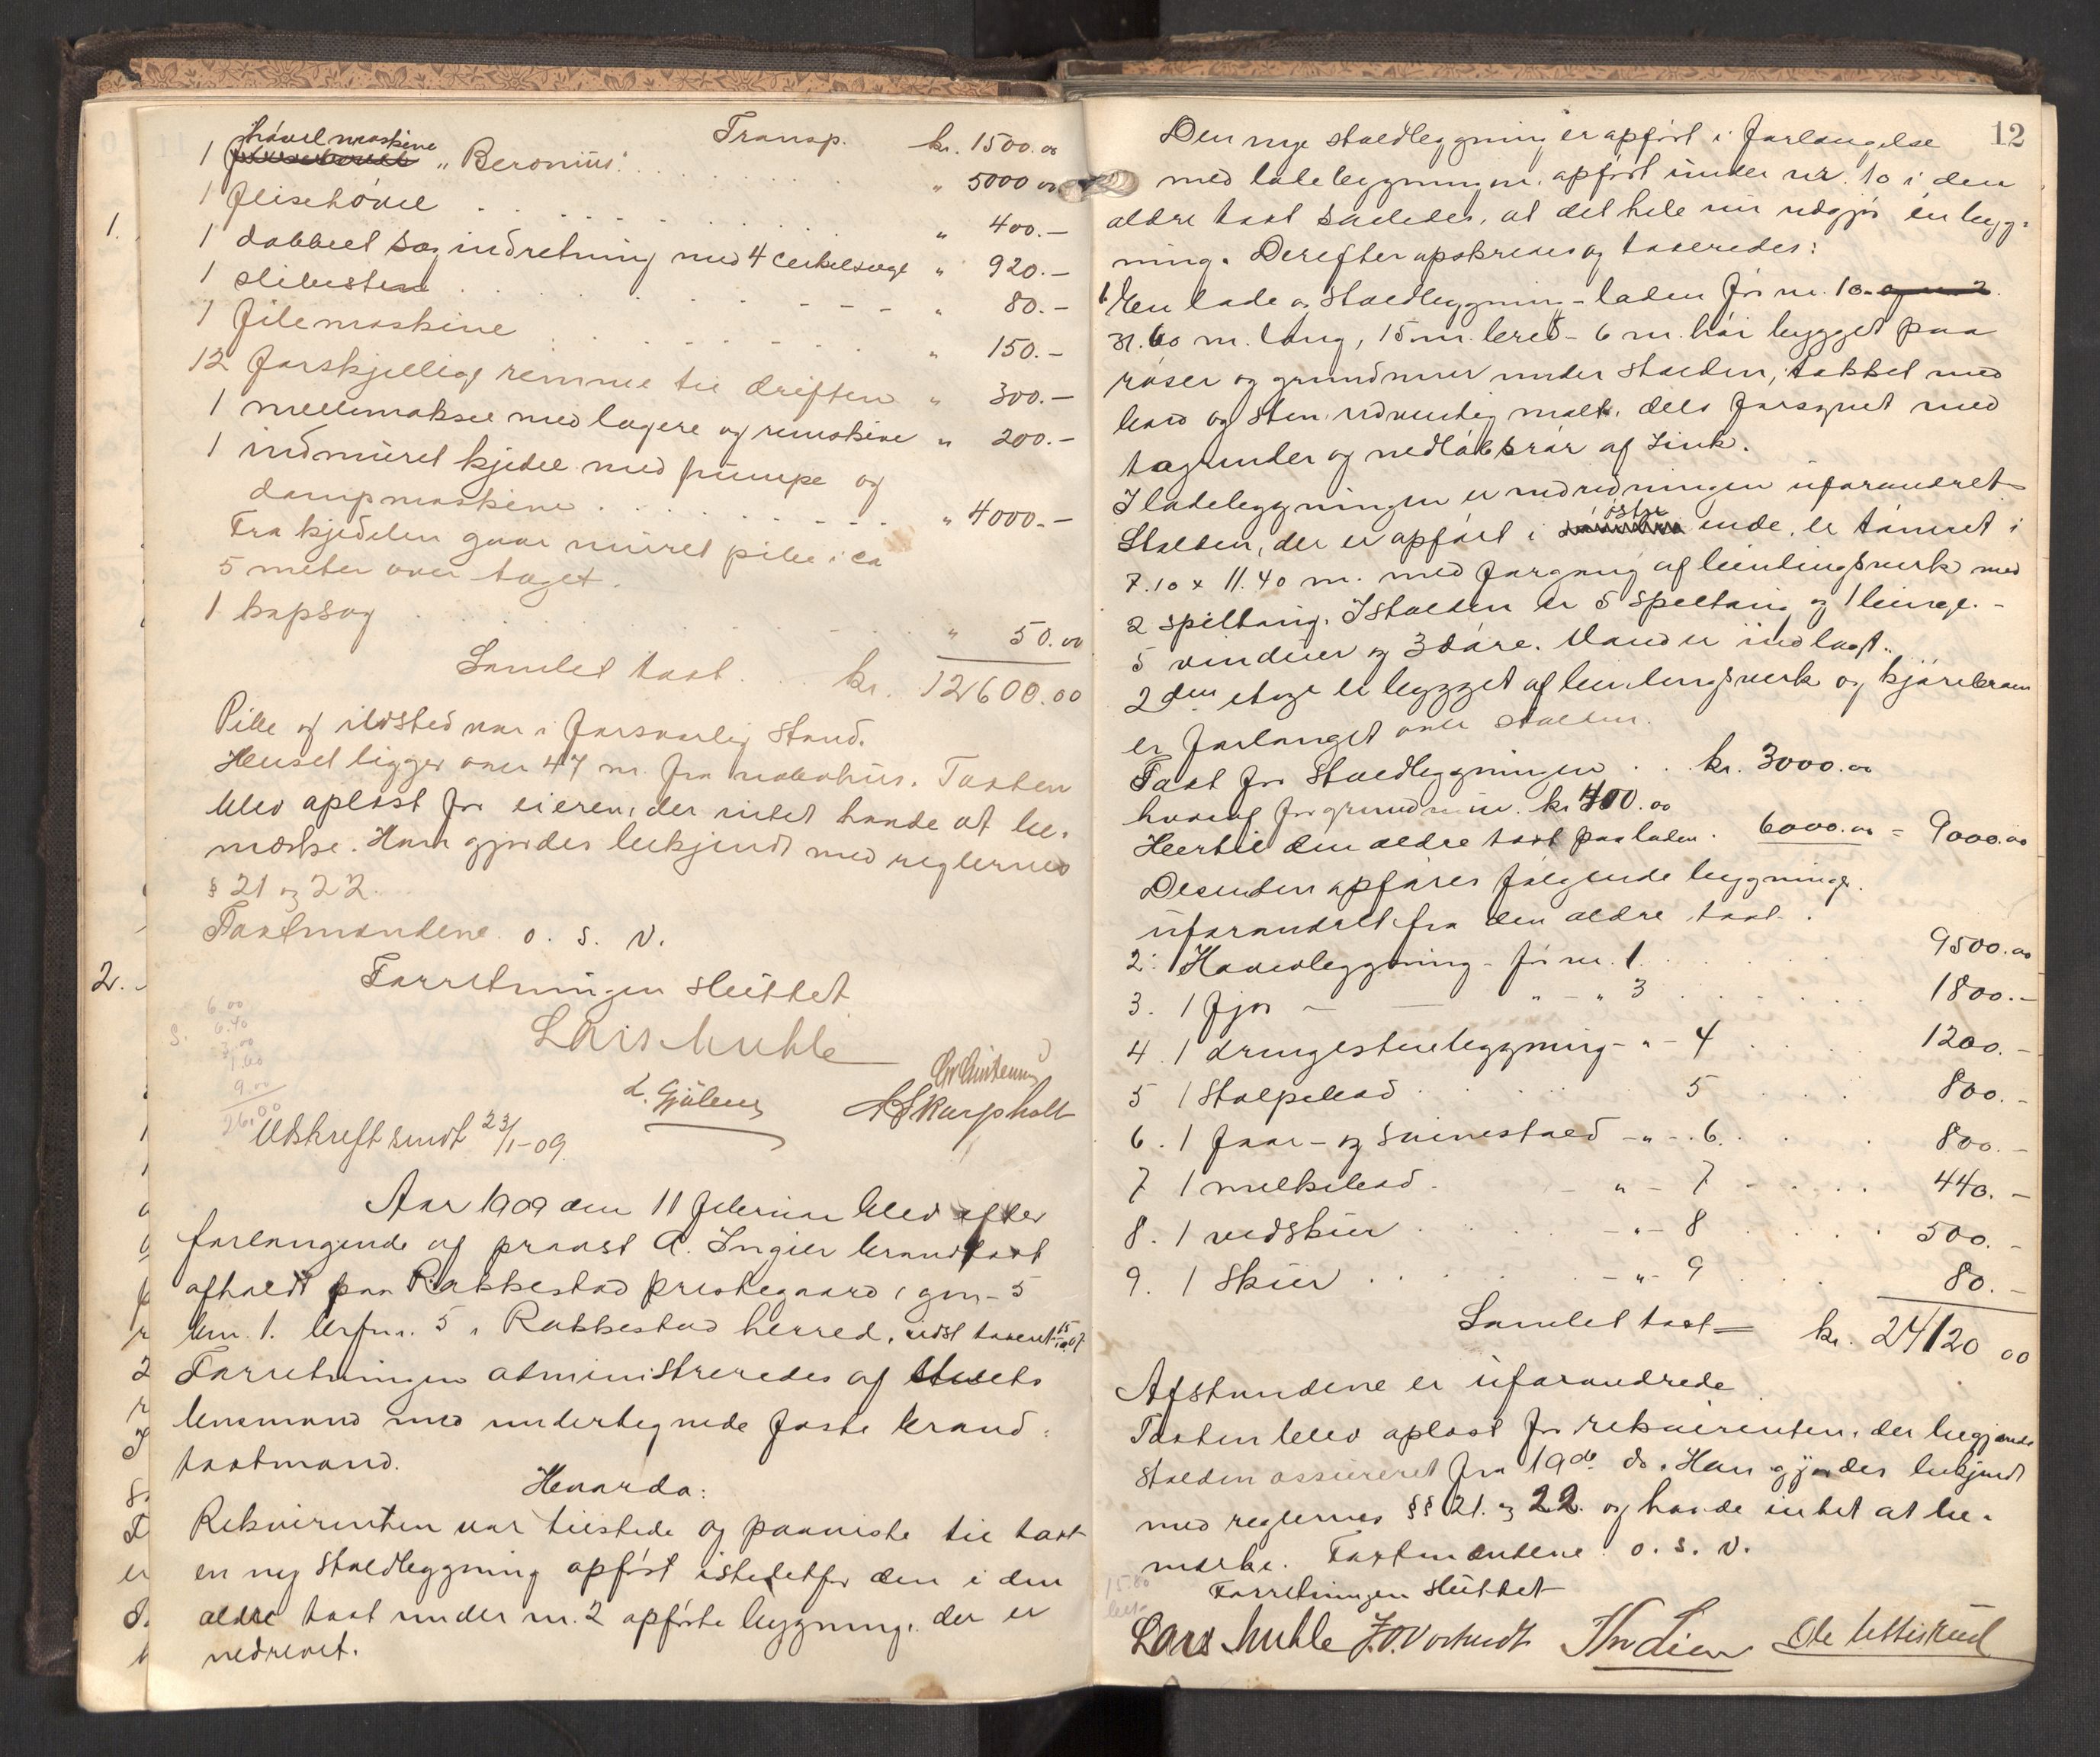 Transp. kr. 1500.00
hövelmaskine
1 "Beronius" . . . " 5000 00
1 flisehövel . . . " 400.-
1 dobbelt sagindretning med 4 cirkelsage " 920.-
1 slibesten . . . " 80.-
1 filemaskine . . . " 150.-
12 forskjellige remme til driften " 300.-
1 mellemaksel med lagere og remskive " 200.-
1 indmuret kjedel med pumpe og
dampmaskine . . . " 4000.-
Fra kjedelen gaar muret pibe i ca
5 meter over taget.
1 kapsag . . . " 50.00
Samlet taxt . . kr. 12600.00
Pibe og ildsted var i forsvarlig stand.
Huset ligger over 47 m. fra nabohus. Taxten
blev oplæst for eieren, der intet havde at be-
mærke. Han gjordes bekjendt med reglernes
§ 21 og 22.
Taxtmændene o. s. v.
Forretningen sluttet
Lars Muhle
L. Gjölens A Skarpholt
6.00
6.40
3.00
1.60
9.00
26.00
Udskrift sendt 23/1-09
Aar 1909 den 11 februar blev efter
forlangende af provst A. Ingier brandtaxt
afholdt paa Rakkestad prestegaard, gn. 5
bn. 1. brfnr. 5 i Rakkestad herred, sidst taxeret 15/10.07.
Forretningen administreredes af stedets
lensmand med undertegnede faste brand-
taxtmænd.
Hvorda:
Rekvirenten var tilstede og paaviste til taxt
en ny staldbygning opført istedetfor den i den
ældre taxt under nr. 2 opførte bygning, der er
nedrevet.
12
Den nye staldbygning er opført i forlængelse
med ladebygningen, opført under nr. 10 i den
ældre taxt saaledes, at det hele nu udgjør én byg-
ning. Derefter opskreves og taxeredes:
1. En lade og staldbygning - laden før nr. 10
31.60 m. lang, 15 m. bred - 6 m. høi bygget paa
røser og grundmur under stalden, takket med
bord og sten udvendig malt, dels forsynet med
tagrender og nedløbsrør af zink.
I ladebygningen er indredningen uforandret
østre
Stalden, der er opført i ende, er tømret i
7.10 x 11.40 m. med forgang af bindingsverk med
2 spiltaug. I stalden er 5 speltaug og 1 binge. -
5 vinduer og 3 døre. Vand er indlagt.
2den etage er bygget af bindingsverk og kjørebroen
er forlænget over stalden.
Taxt for staldbygningen . . kr. 3000.00
hvoraf for grundmur. kr 400.00
Hertil den ældre taxt paa laden . 6000.00 = 9000.00
Desuden opføres følgende bygninger
uforandret fra den ældre taxt.
2. Hovedbygning - før nr. 1 . . . 9500.00
3. 1 fjøs - " - " 3 . . . 1800.-
4. 1 drengestuebygning - " - 4 . . . 1200.-
5 1 Stolpebod . . . 5 . . . 800.-
6. 1 faar- og svinestald - " - 6. . . 800.-
7 1 melkebod . " - 7 . . . 440.-
8. 1 vedskur . . . - " - 8 . . . 500.-
9. 1 Skur . . . - " - 9 . . . 80.-
Samlet taxt = kr. 24120 00
Afstandene er uforandrede
Taxten blev oplæst for rekvirenten, der begjærede
stalden assureret fra 19de ds. Han gjordes bekjendt
med reglernes §§ 21. og 22. og havde intet at be-
mærke. Taxtmændene o. s. v.
15.00
Forretningen sluttet
Lars Muhle Th Lien
1.
2.